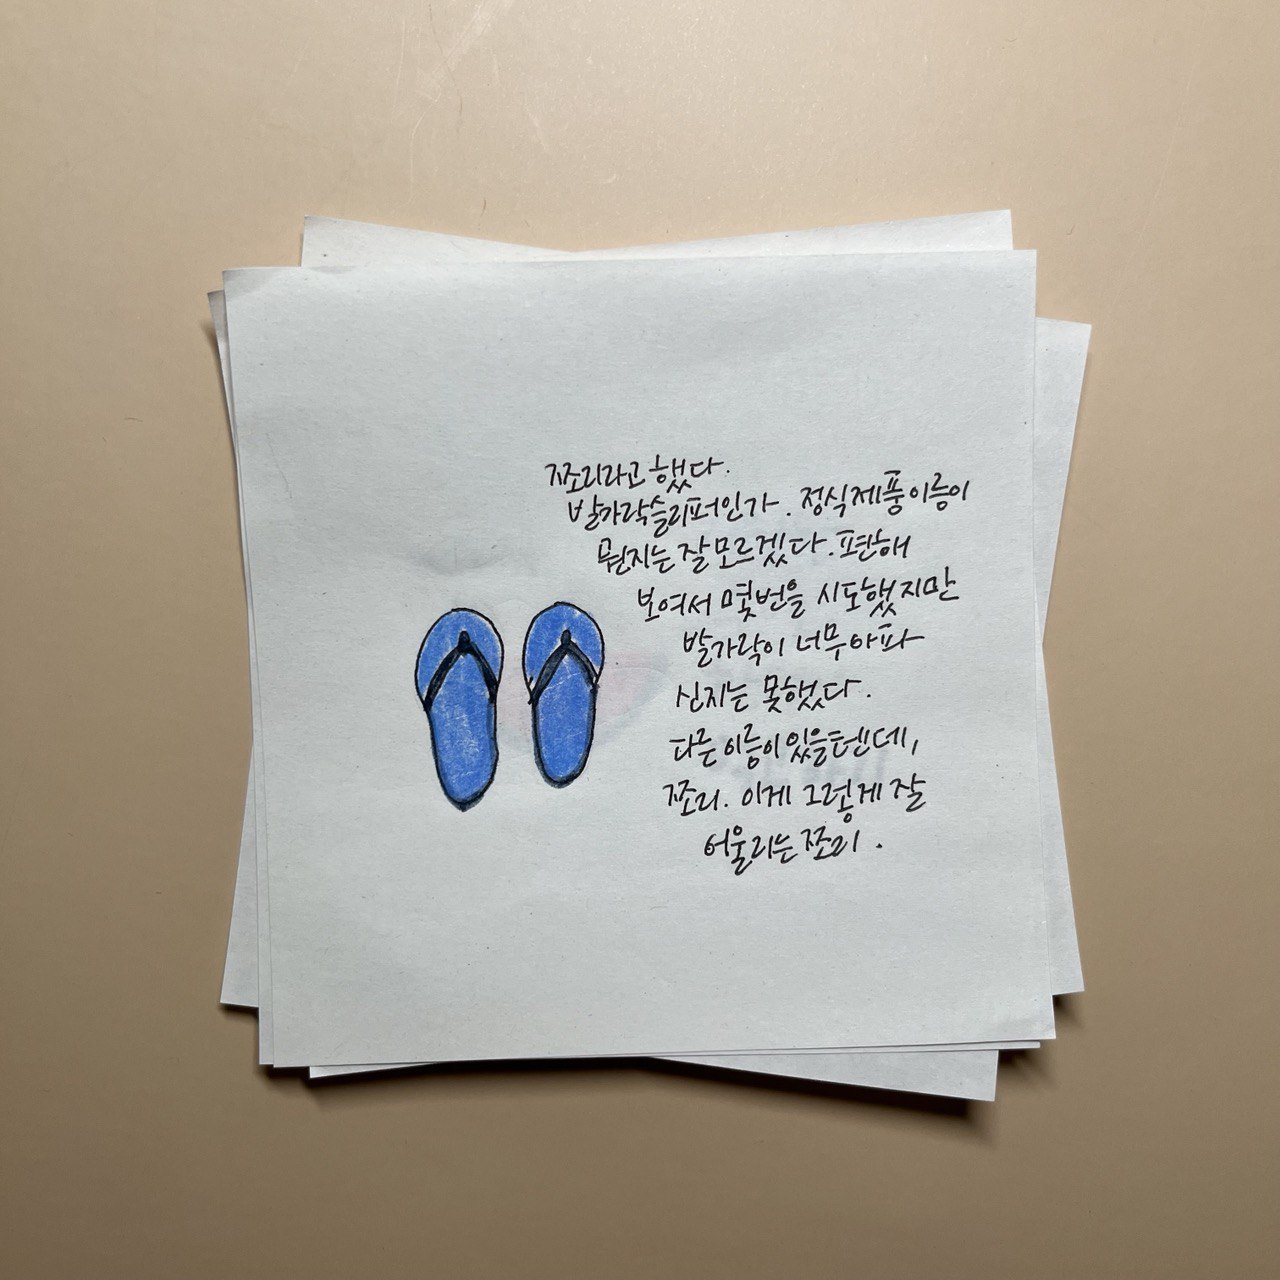 쪼리라고 했다.
발가락슬리퍼인가. 정식제품이름이
뭔지는 잘모르겠다. 편해
보여서 몇번을 시도했지만
발가락이 너무아파
신지는 못했다.
다른이름이있을텐데,
쪼리. 이게 그렇게 잘
어울리는 쪼리.